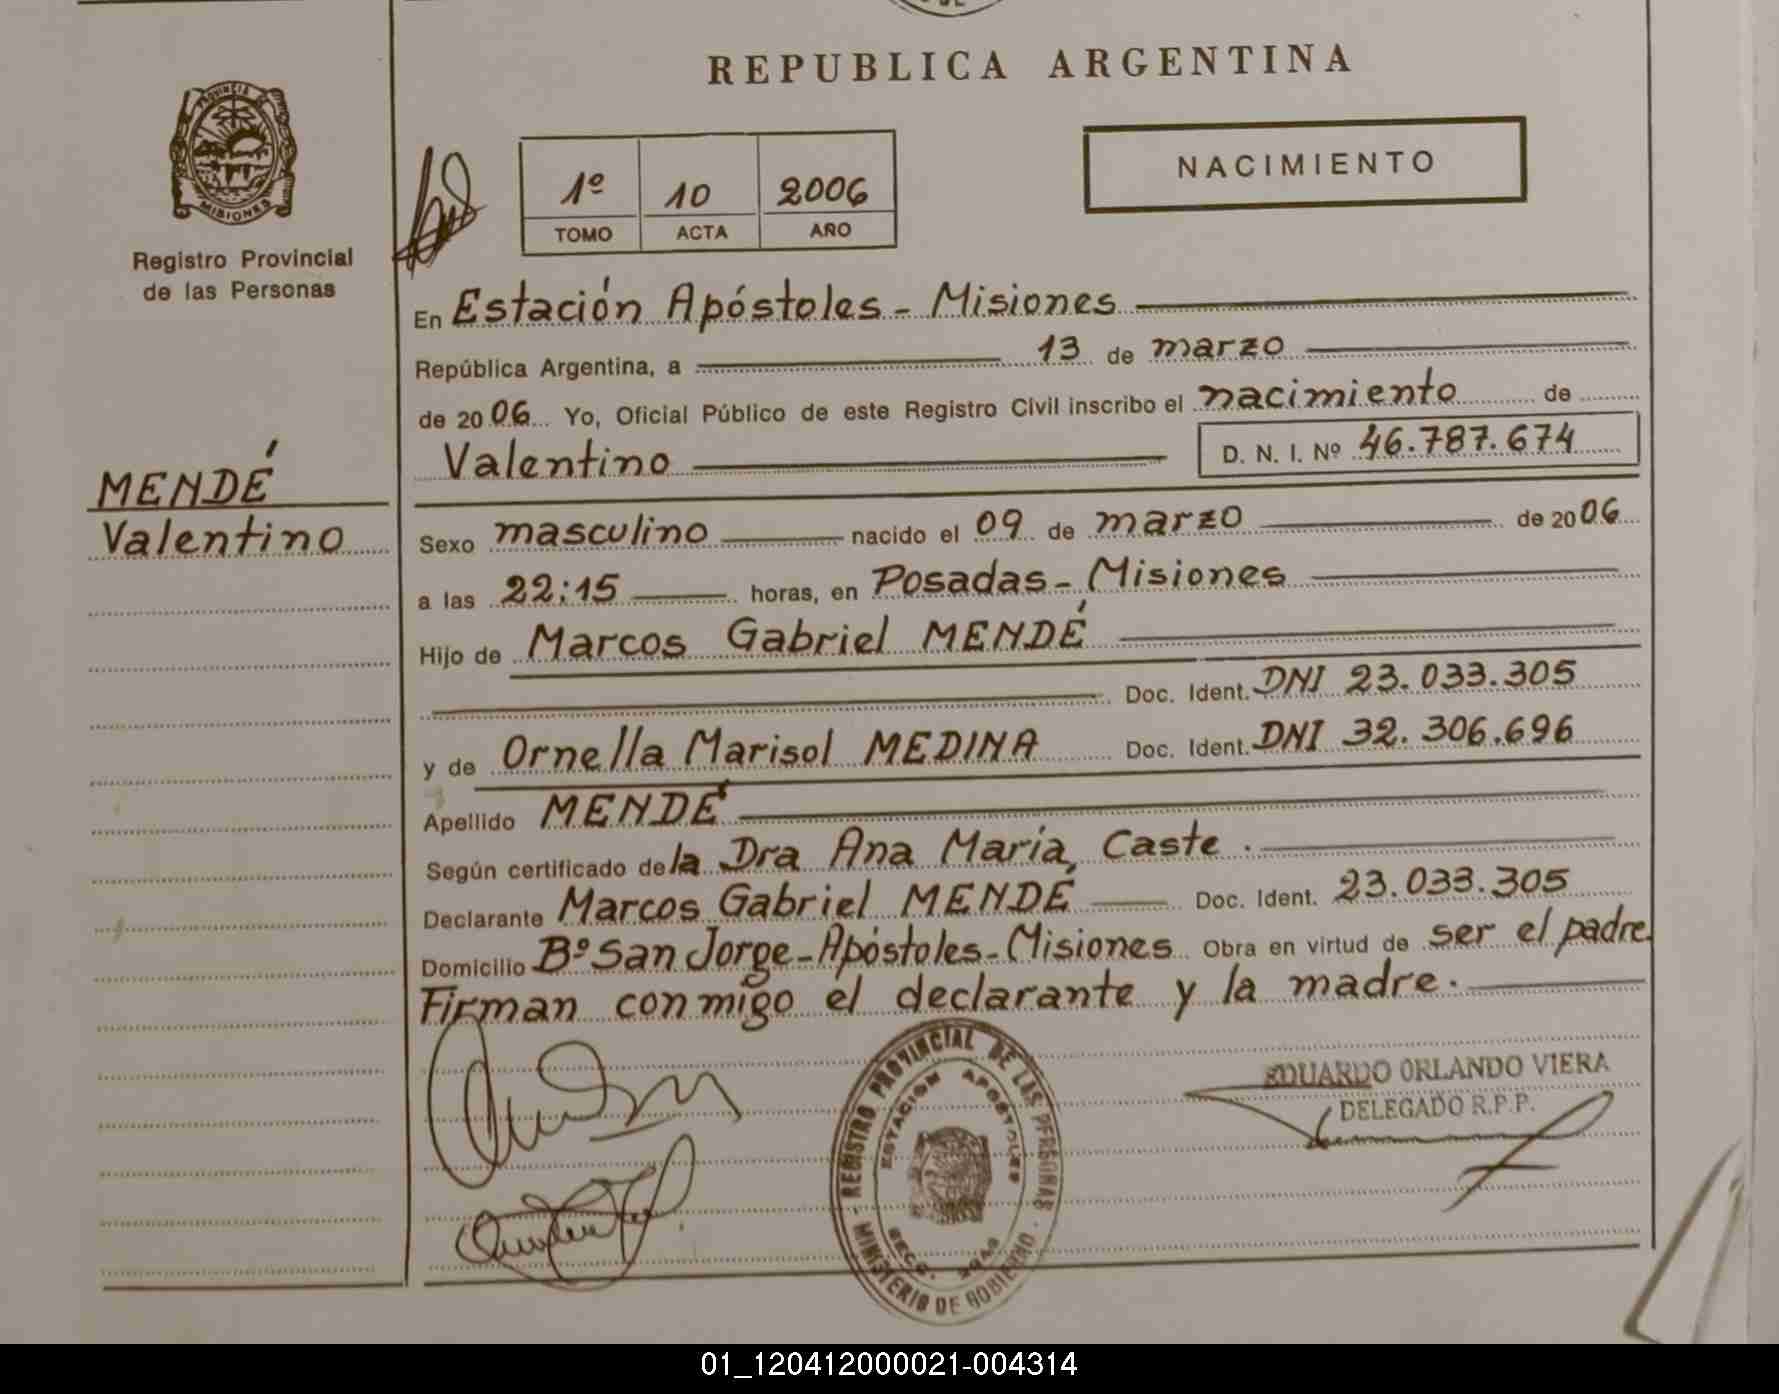 REPUBLICA ARGENTINA
PROVINCIA DE
MISIONES
Registro Provincial
de las Personas
1º 10 2006
TOMO ACTA AÑO
NACIMIENTO
En Estación Apóstoles - Misiones
República Argentina, a 13 de marzo
de 2006 Yo, Oficial Público de este Registro Civil inscribo el nacimiento de
Valentino D. N. I. Nº 46.787.674
MENDÉ
Valentino
Sexo masculino nacido el 09 de marzo de 2006
a las 22:15 horas, en Posadas - Misiones
Hijo de Marcos Gabriel MENDÉ
Doc. Ident. DNI 23.033.305
y de Ornella Marisol MEDINA Doc. Ident. DNI 32.306.696
Apellido MENDÉ
Según certificado de la Dra Ana María Caste.
Declarante Marcos Gabriel MENDÉ Doc. Ident. 23.033.305
Domicilio Bº San Jorge - Apóstoles - Misiones Obra en virtud de ser el padre.
Firman conmigo el declarante y la madre.
REGISTRO PROVINCIAL DE LAS PERSONAS
ESTACION APOSTOLES
SECC.
MINISTERIO DE GOBIERNO
EDUARDO ORLANDO VIERA
DELEGADO R.P.P.
01_120412000021-004314